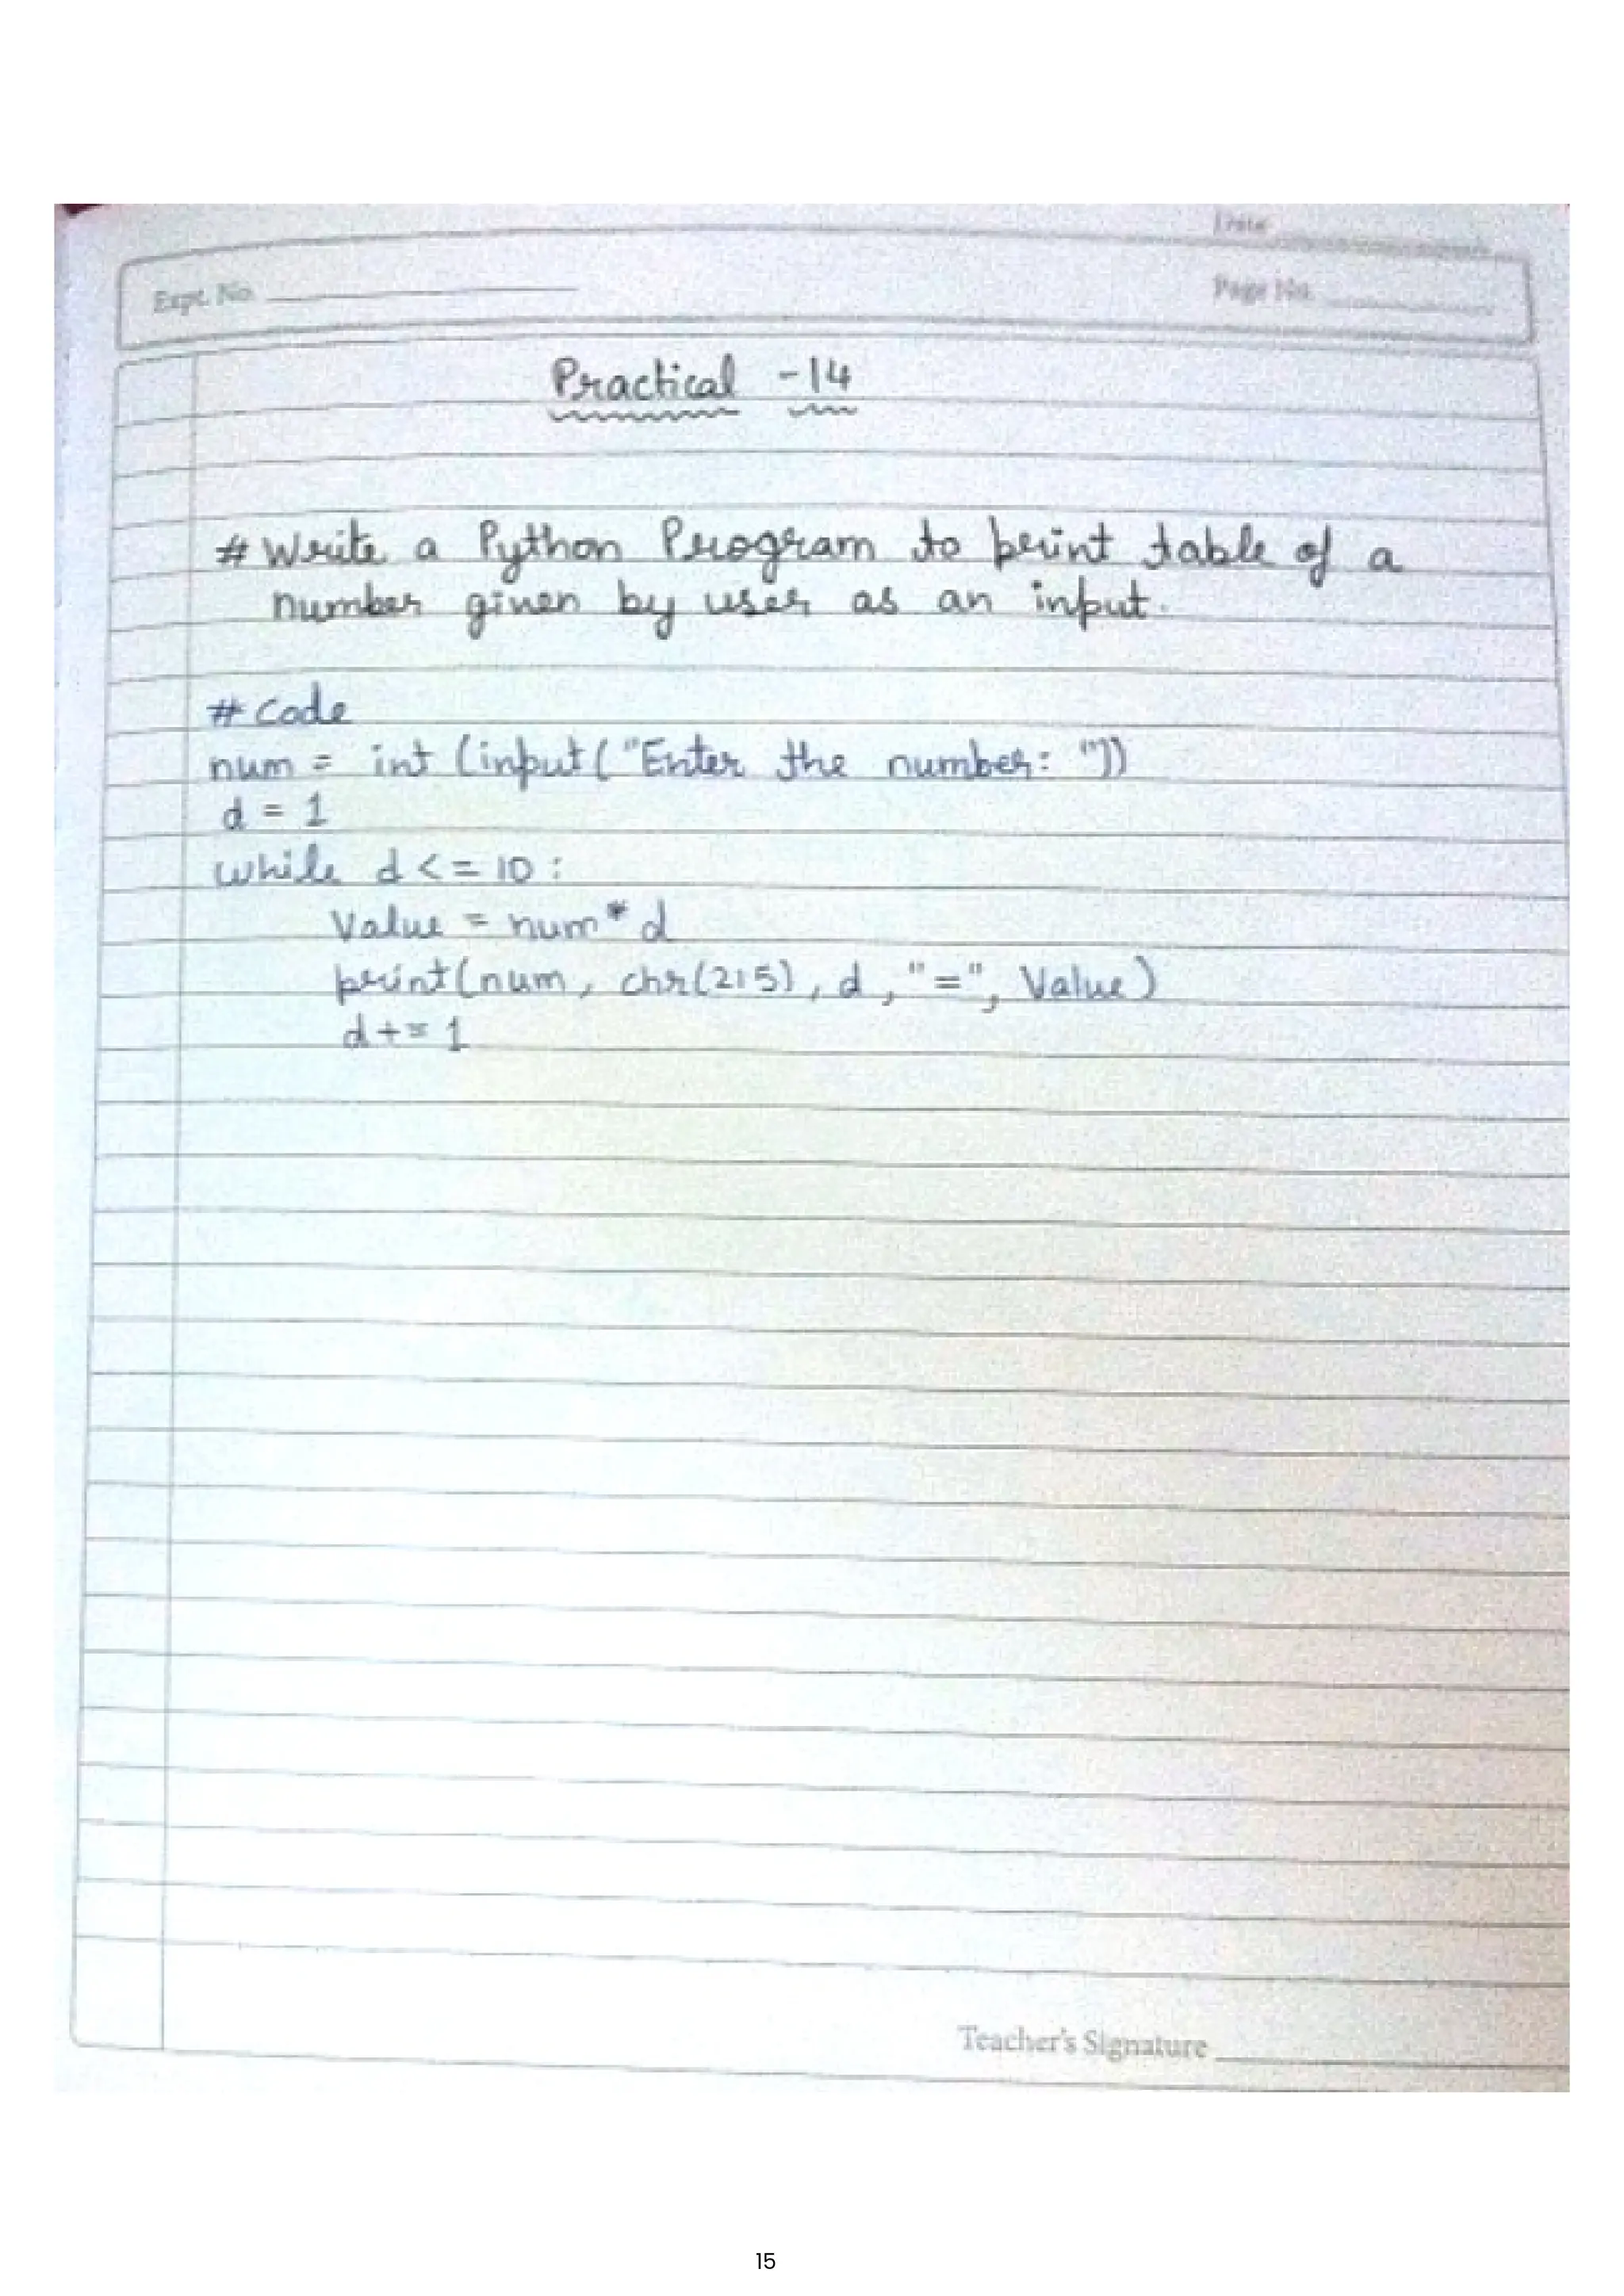 Date
Expt. No.
Page No.
Practical -14
# Write a Python Program to print table of a
number given by user as an input.
# Code
num = int (input ("Enter the number: "))
d = 1
while d <= 10 :
Value = num * d
print(num, chr(215), d, "=", Value)
d += 1
Teacher's Signature
15